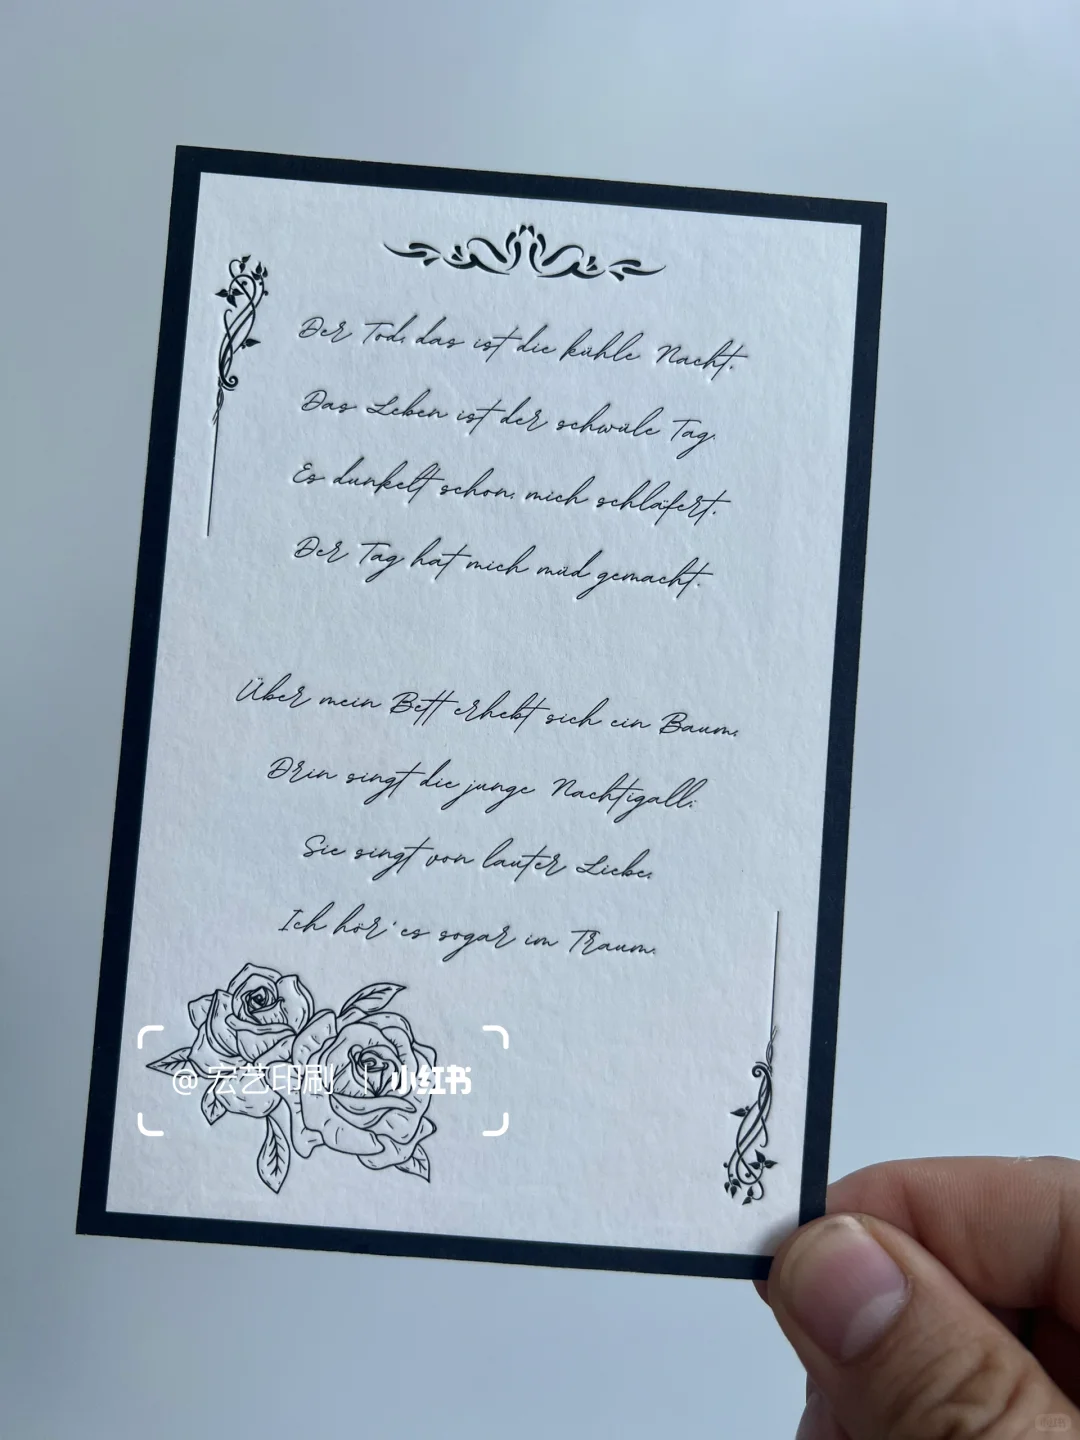 Der Tod, das ist die kühle Nacht.
Das Leben ist der schwüle Tag.
Es dunkelt schon, mich schläfert.
Der Tag hat mich müd gemacht.
Über mein Bett erhebt sich ein Baum,
Drin singt die junge Nachtigall;
Sie singt von lauter Liebe,
Ich hör' es sogar im Traum.
@ 宏艺印刷 | 小红书
小红书